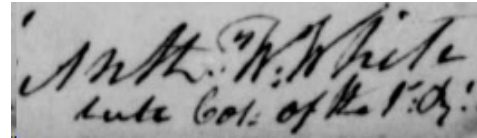 Anth. W. White
late Col: of the 1st